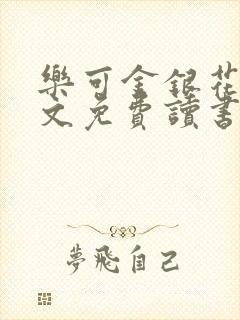 樂可金銀花
文免費讀書
夢飛自己